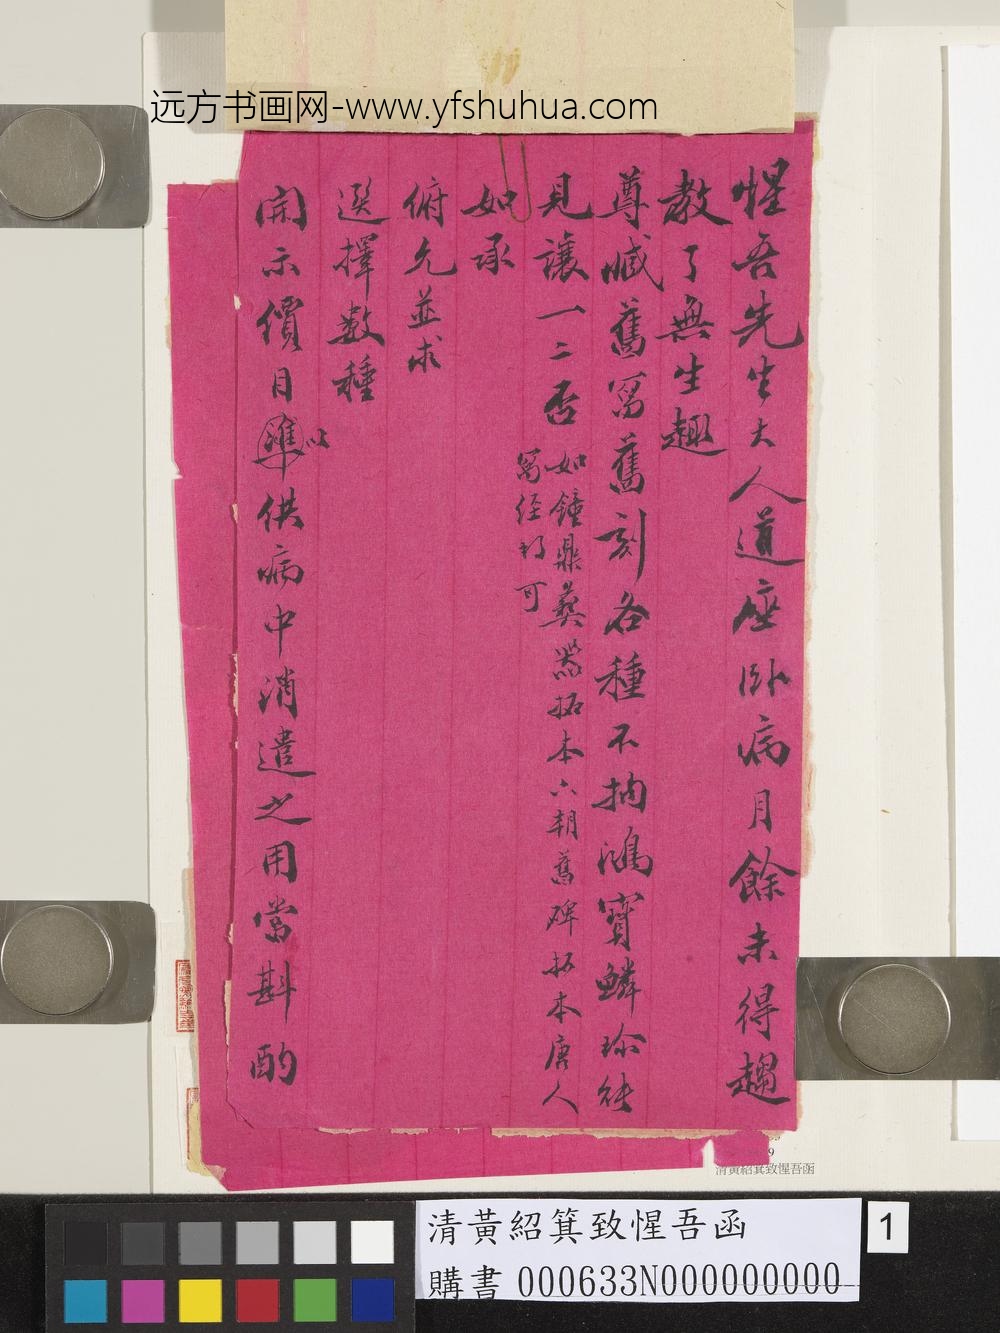 远方书画网-www.yfshuhua.com
惺吾先生大人道座卧病月餘未得趨
教了無生趣
尊臧舊寫舊刻各種不拘鴻寶鱗珍能
見讓一二否如鐘鼎彝器拓本六朝舊碑拓本唐人
寫經均可
如承
俯允並求
選擇數種
開示價目以供病中消遣之用當斟酌
9
清黃紹箕致惺吾函
清黃紹箕致惺吾函
購書 000633N000000000
1